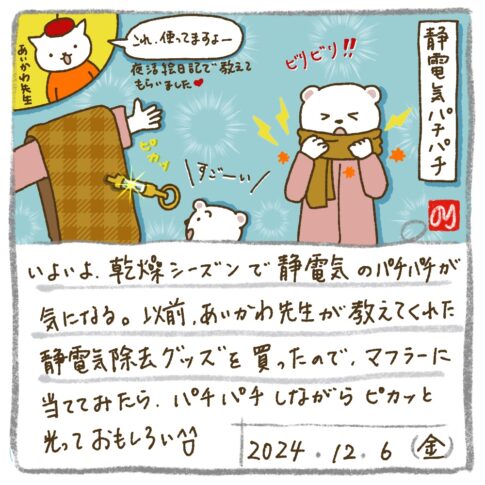 静電気パチパチ
ビリビリ!!
これ、使ってますよー
復活絵日記で教えて
もらいました♥
あいかわ先生
ピカッ
すごーい
いよいよ、乾燥シーズンで静電気のパチパチが
気になる。以前、あいかわ先生が教えてくれた
静電気除去グッズを買ったので、マフラーに
当ててみたら、パチパチしながらピカッと
光っておもしろい
2024.12.6(金)